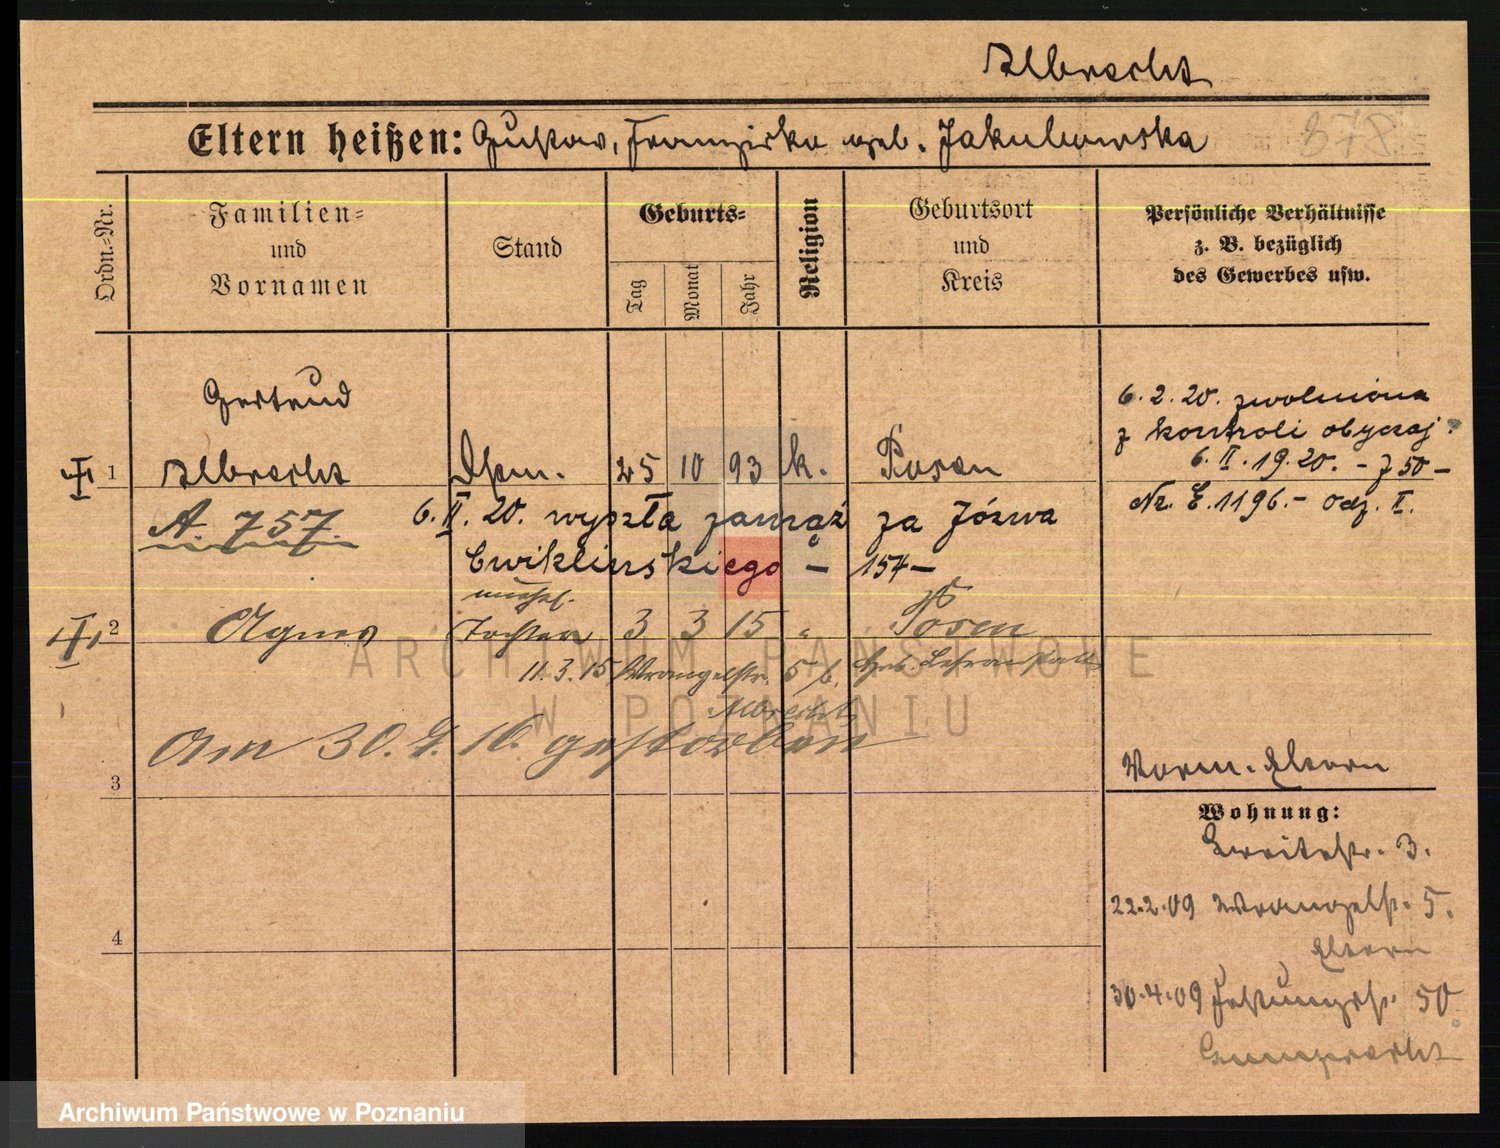 Albrecht
Eltern heißen: Gustav, Franziska geb. Jakubowska
878
Ordn.=Nr.
Familien=
und
Vornamen
Stand
Geburts=
Tag
Monat
Jahr
Religion
Geburtsort
und
Kreis
Persönliche Verhältnisse
z. B. bezüglich
des Gewerbes usw.
Gertrud
1 Albrecht
25 10 93 k. Posen
6.2.20. zwolniona
z kontroli obyczaj.
6.II.1920. - J 50 -
Nr. E.1196.- odz. I.
A. 757.
6.II.20. wyszła zamąż za Józwa
Cwiklinskiego - 154 -
unehel.
2 Agnes Tochter 3 3 15 " Posen
11.3.15 Wrangelstr. 5 b.
Albrecht
Am 30. 16. gestorben
3
4
Eltern
Wohnung:
Breitestr. 3.
22.2.09 Wrangelst. 5.
Eltern
30.4.09 Festungsst. 50
ARCHIWUM PAŃSTWOWE
W POZNANIU
Archiwum Państwowe w Poznaniu